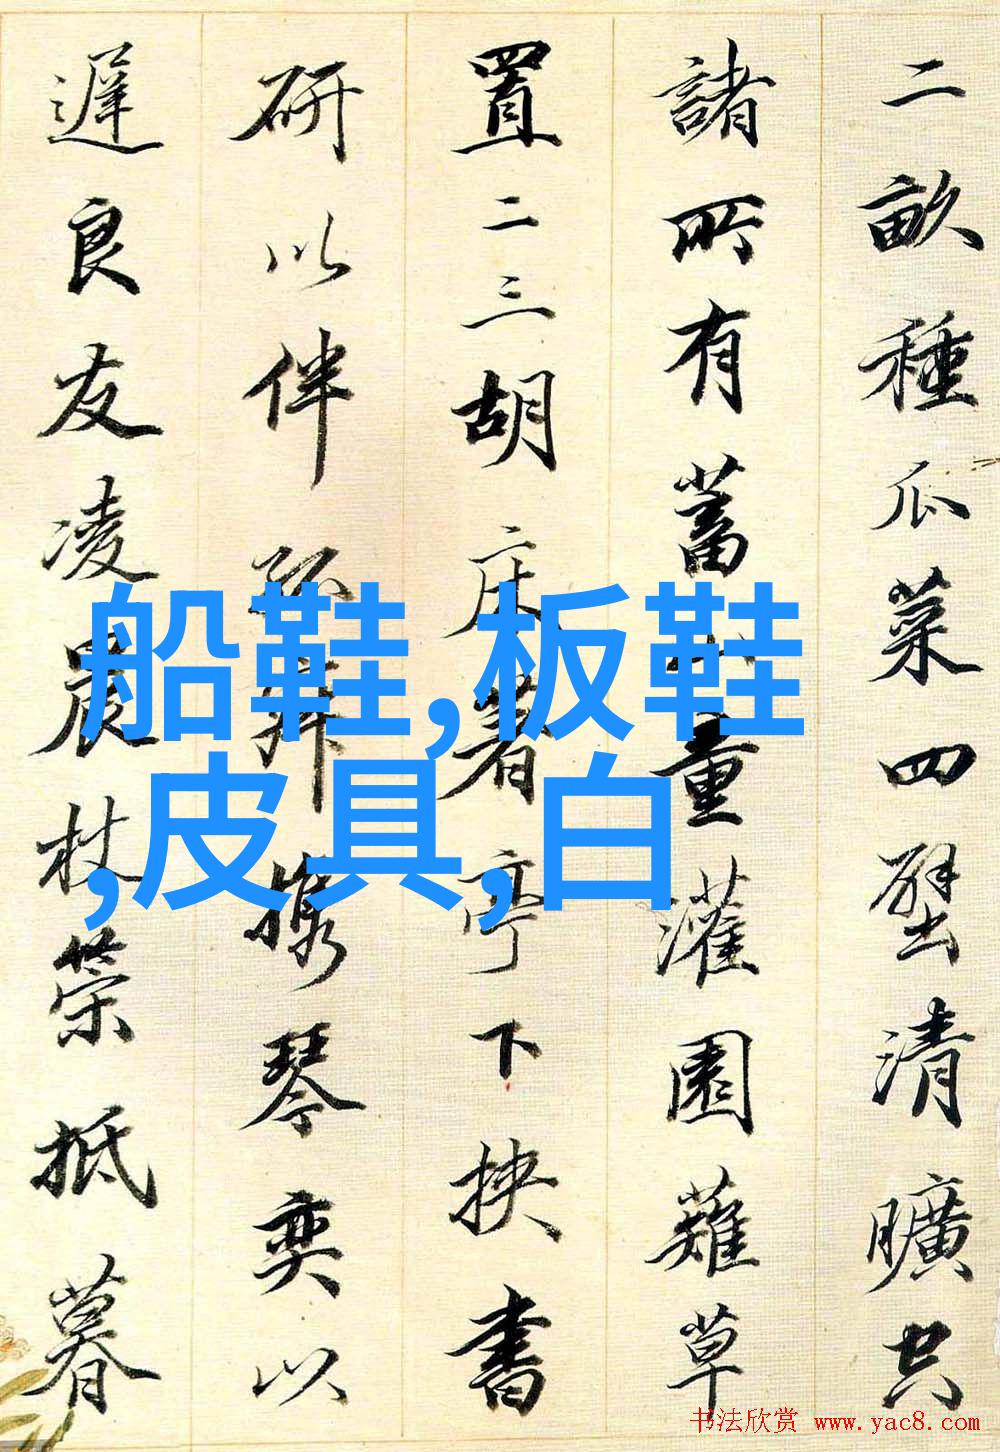 二畝種瓜菜四壁清曠空
諸所有蓄童灌園薙草
置二三胡床著亭下挾書
研以伴孤攜琴奕以
遲良友凌晨杖策抵暮
船鞋,板鞋
,皮具,白
书法欣赏 www.yac8.com